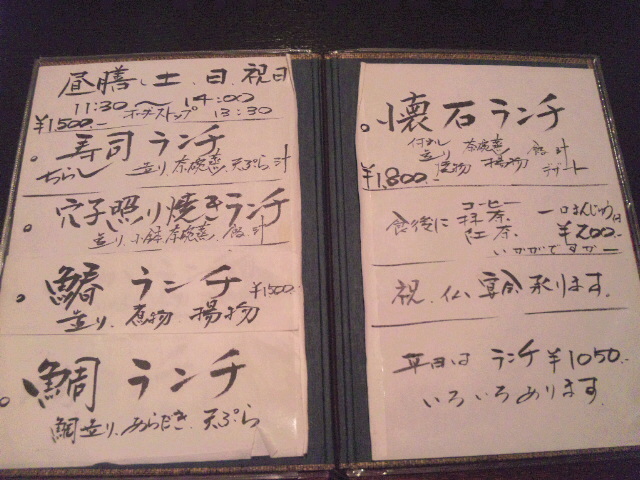 昼膳 土、日、祝日
11:30〜14:00
オーダーストップ 13:30
¥1500.-
。寿司ランチ
ちらし 造り 茶碗蒸 天ぷら 汁
。穴子照り焼きランチ
造り 小鉢 茶碗蒸 飯 汁
。鰆 ランチ ¥1500.-
造り. 煮物 揚物
。鯛 ランチ
鯛造り あらだき. 天ぷら
。懐石ランチ
造り 茶碗蒸 飯 汁
揚物 デザート
¥1,800.-
食後に コーヒー
抹茶
紅茶. 一口まんじゅう付
¥200.-
いかがですか
祝、仏、宴会 承ります。
平日は ランチ ¥1050.-
いろいろあります。